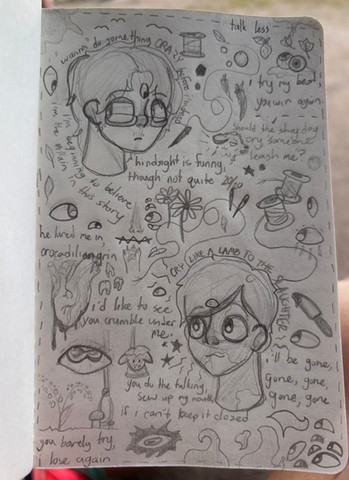 talk less
i wanna do something CRAZY before i
i try my best,
you win again
should the stray dog
cry someone
leash me?
i'm beginning to believe
i'm the villain in this story
hindsight is funny,
though not quite 20/20
he lured me in,
crocodilian grin
CRY LIKE A LAMB TO THE SLAUGHTER
i'd like to see
you crumble under
me.
i'll be gone,
gone, gone,
gone, gone
you do the talking,
sew up my mouth
if i can't keep it closed
you barely try,
i lose again